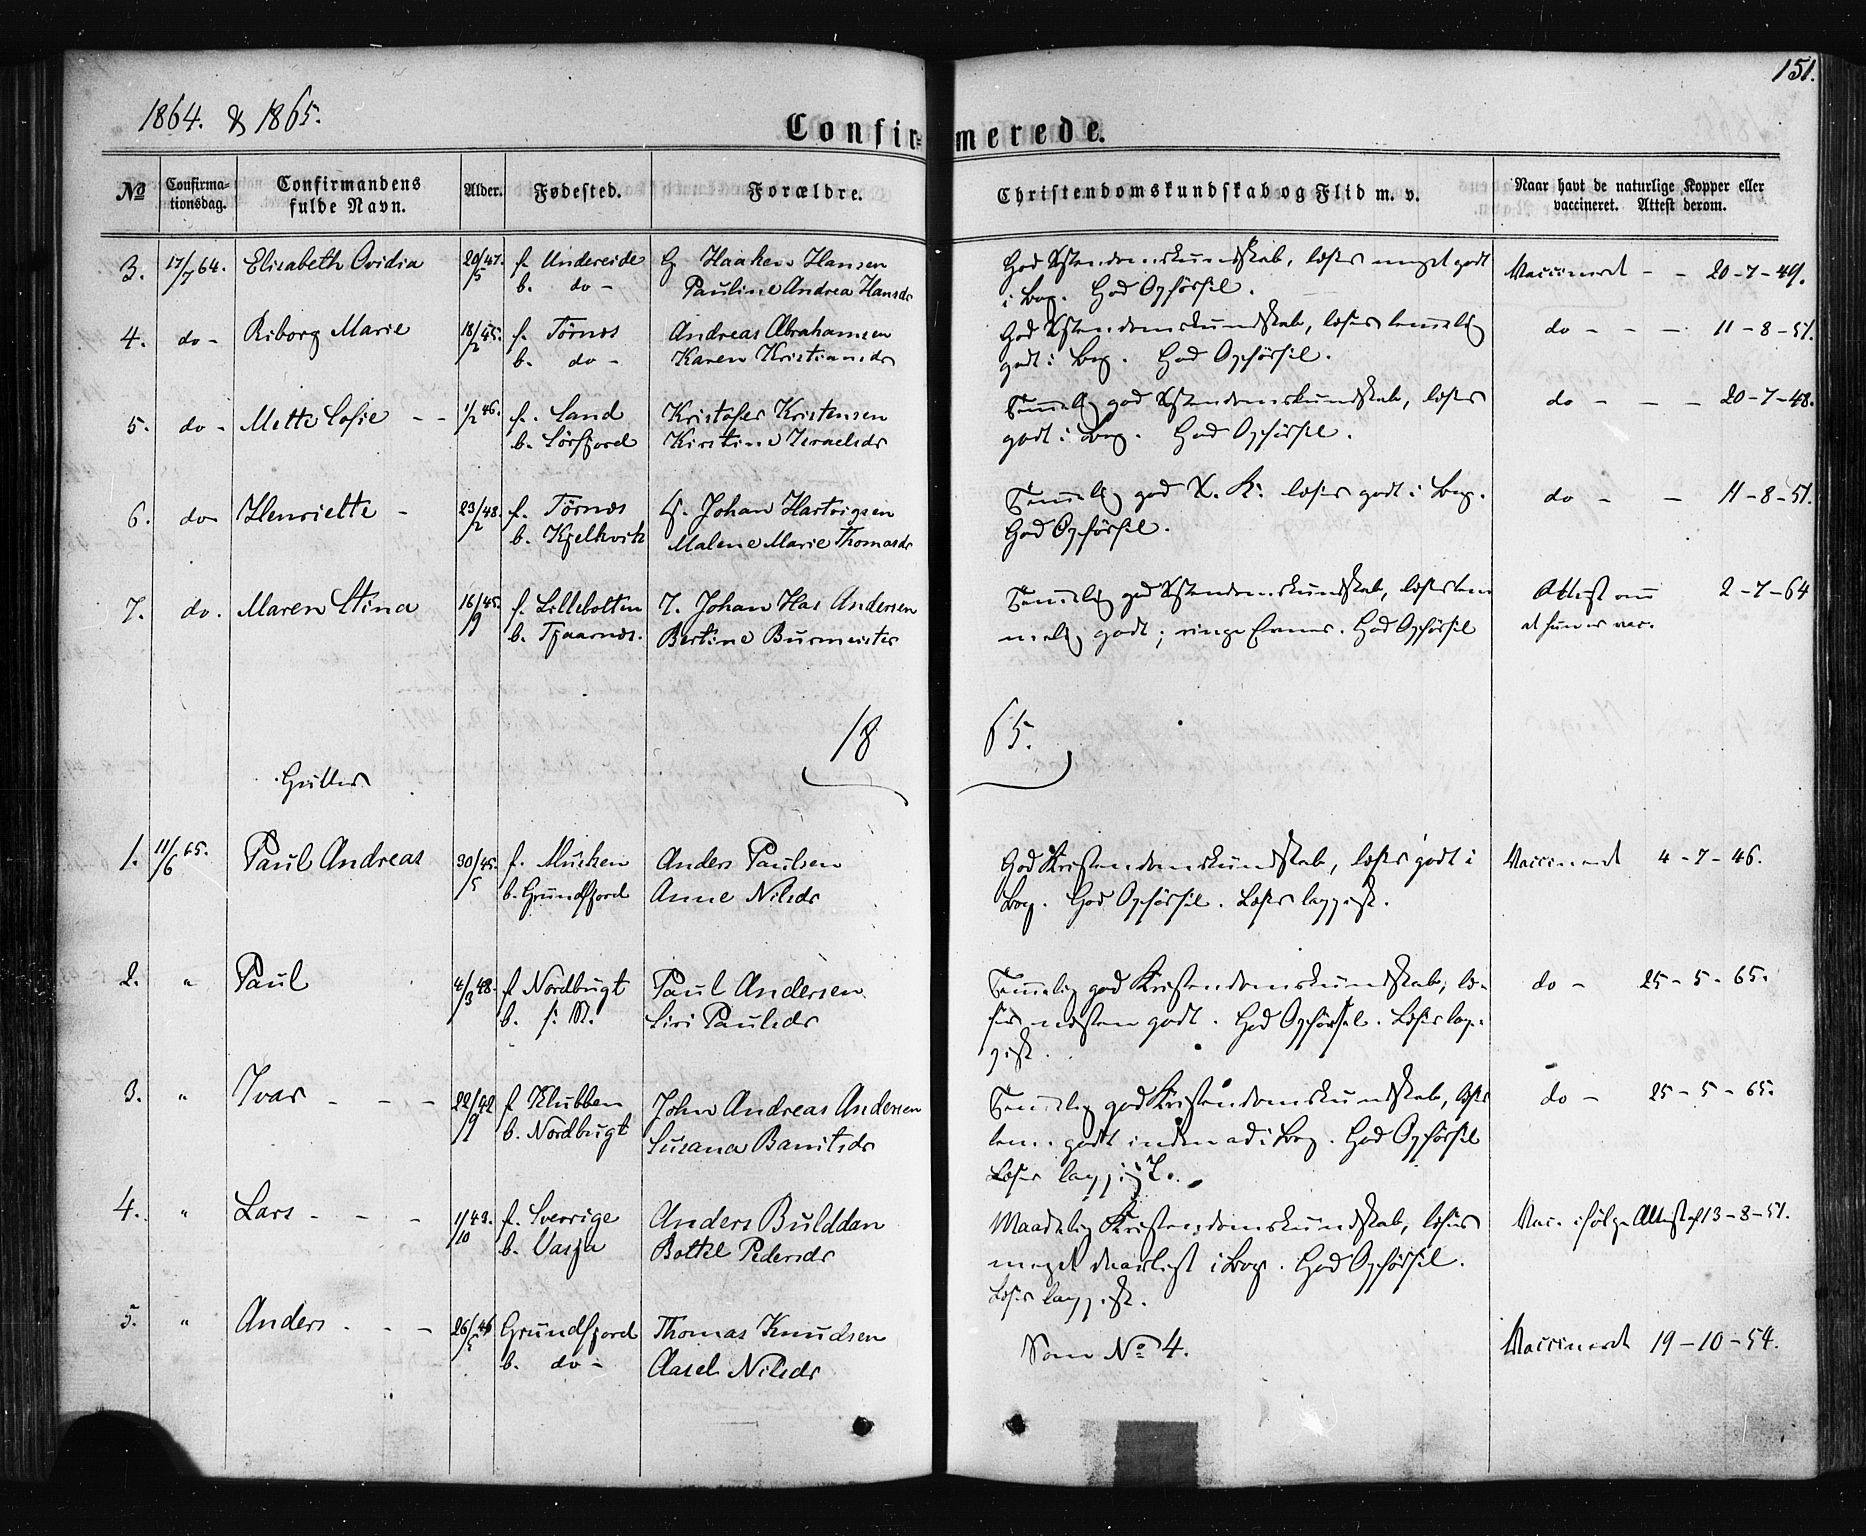 151.
1864. & 1865.
Confirmerede.
No Confirmationsdag. Confirmandens fulde Navn. Alder. Fødested. Forældre. Christendomskundskab og Flid m. v. Naar havt de naturlige Kopper eller vaccineret. Attest derom.
3. 17/7 64. Elisabeth Ovidia 20/5 47. f. Undereide Haaken Hansen God Xstendomskundskab, læser meget godt Vaccineret - - 20-7-49.
b. do - Pauline Andrea Hansdr i Bog. God Opførsel.
4. do - Riborg Marie 18/2 45. f. Törnæs Andreas Abrahamsen God Xstendomskundskab, læser temelig do - - - 11-8-51.
b. do - Karen Kristiansdr godt i Bog. God Opførsel.
5. do - Mette Sofie - - 1/2 46. f. Sand Kristofer Kristensen Temelig god Xstendomskundskab, læser do - - - 20-7-48.
b. Sörfjord Kirstine Israelsdr godt i Bog. God Opførsel.
6. do - Henriette - 23/2 48. f. Törnæs Johan Hartvigsen Temelig god X. K. læser godt i Bog. do - - 11-8-51.
b. Kjelkvik Malene Marie Thomasdr God Opførsel.
7. do. Maren Stina 16/9 45. f. Lillebolten Johan Has Andersen Temelig god Xstendomskundskab, læser tem Attest om 2-7-64
b. Tjaarnæs. Bertine Burmeister melig godt; ringe Evner. God Opførsel at hun er vac.
1865.
Gutter
1. 11/6 65. Paul Andreas 30/5 45. f. Musken Anders Paulsen God Kristendomskundskab, læser godt i Vaccineret 4-7-46.
b. Grundfjord Anne Nilsdr Bog. God Opførsel. Læser lappisk.
2. " Paul 4/3 48. f. Nordbugt Paul Andersen Temelig god Kristendomskundskab, læ- do - 25-5-65.
b. f. M. Siri Paulsdr ser næsten godt. God Opførsel. Læser lap-
pisk.
3. " Ivar - - - 22/9 42 f. Klubben John Andreas Andersen Temelig god Kristendomskundskab, læser do - 25-5-65.
b. Nordbugt Susana Banitsdr tem. godt indenad i Bog. God Opførsel
Læser lappisk.
4. " Lars - - - 1/10 43. f. Sverrige Anders Bulddan Maadelig Kristendomskundskab, læser Vac. ifølge Attest af 13-8-51.
b. Vasja Boltel Pedersdr meget daarligt i Bog. God Opførsel.
Læser lappisk.
5. " Anders - - - 26/5 46 Grundfjord Thomas Knudsen Som No 4. Vaccineret 19-10-54.
b. do - Aasel Nilsdr